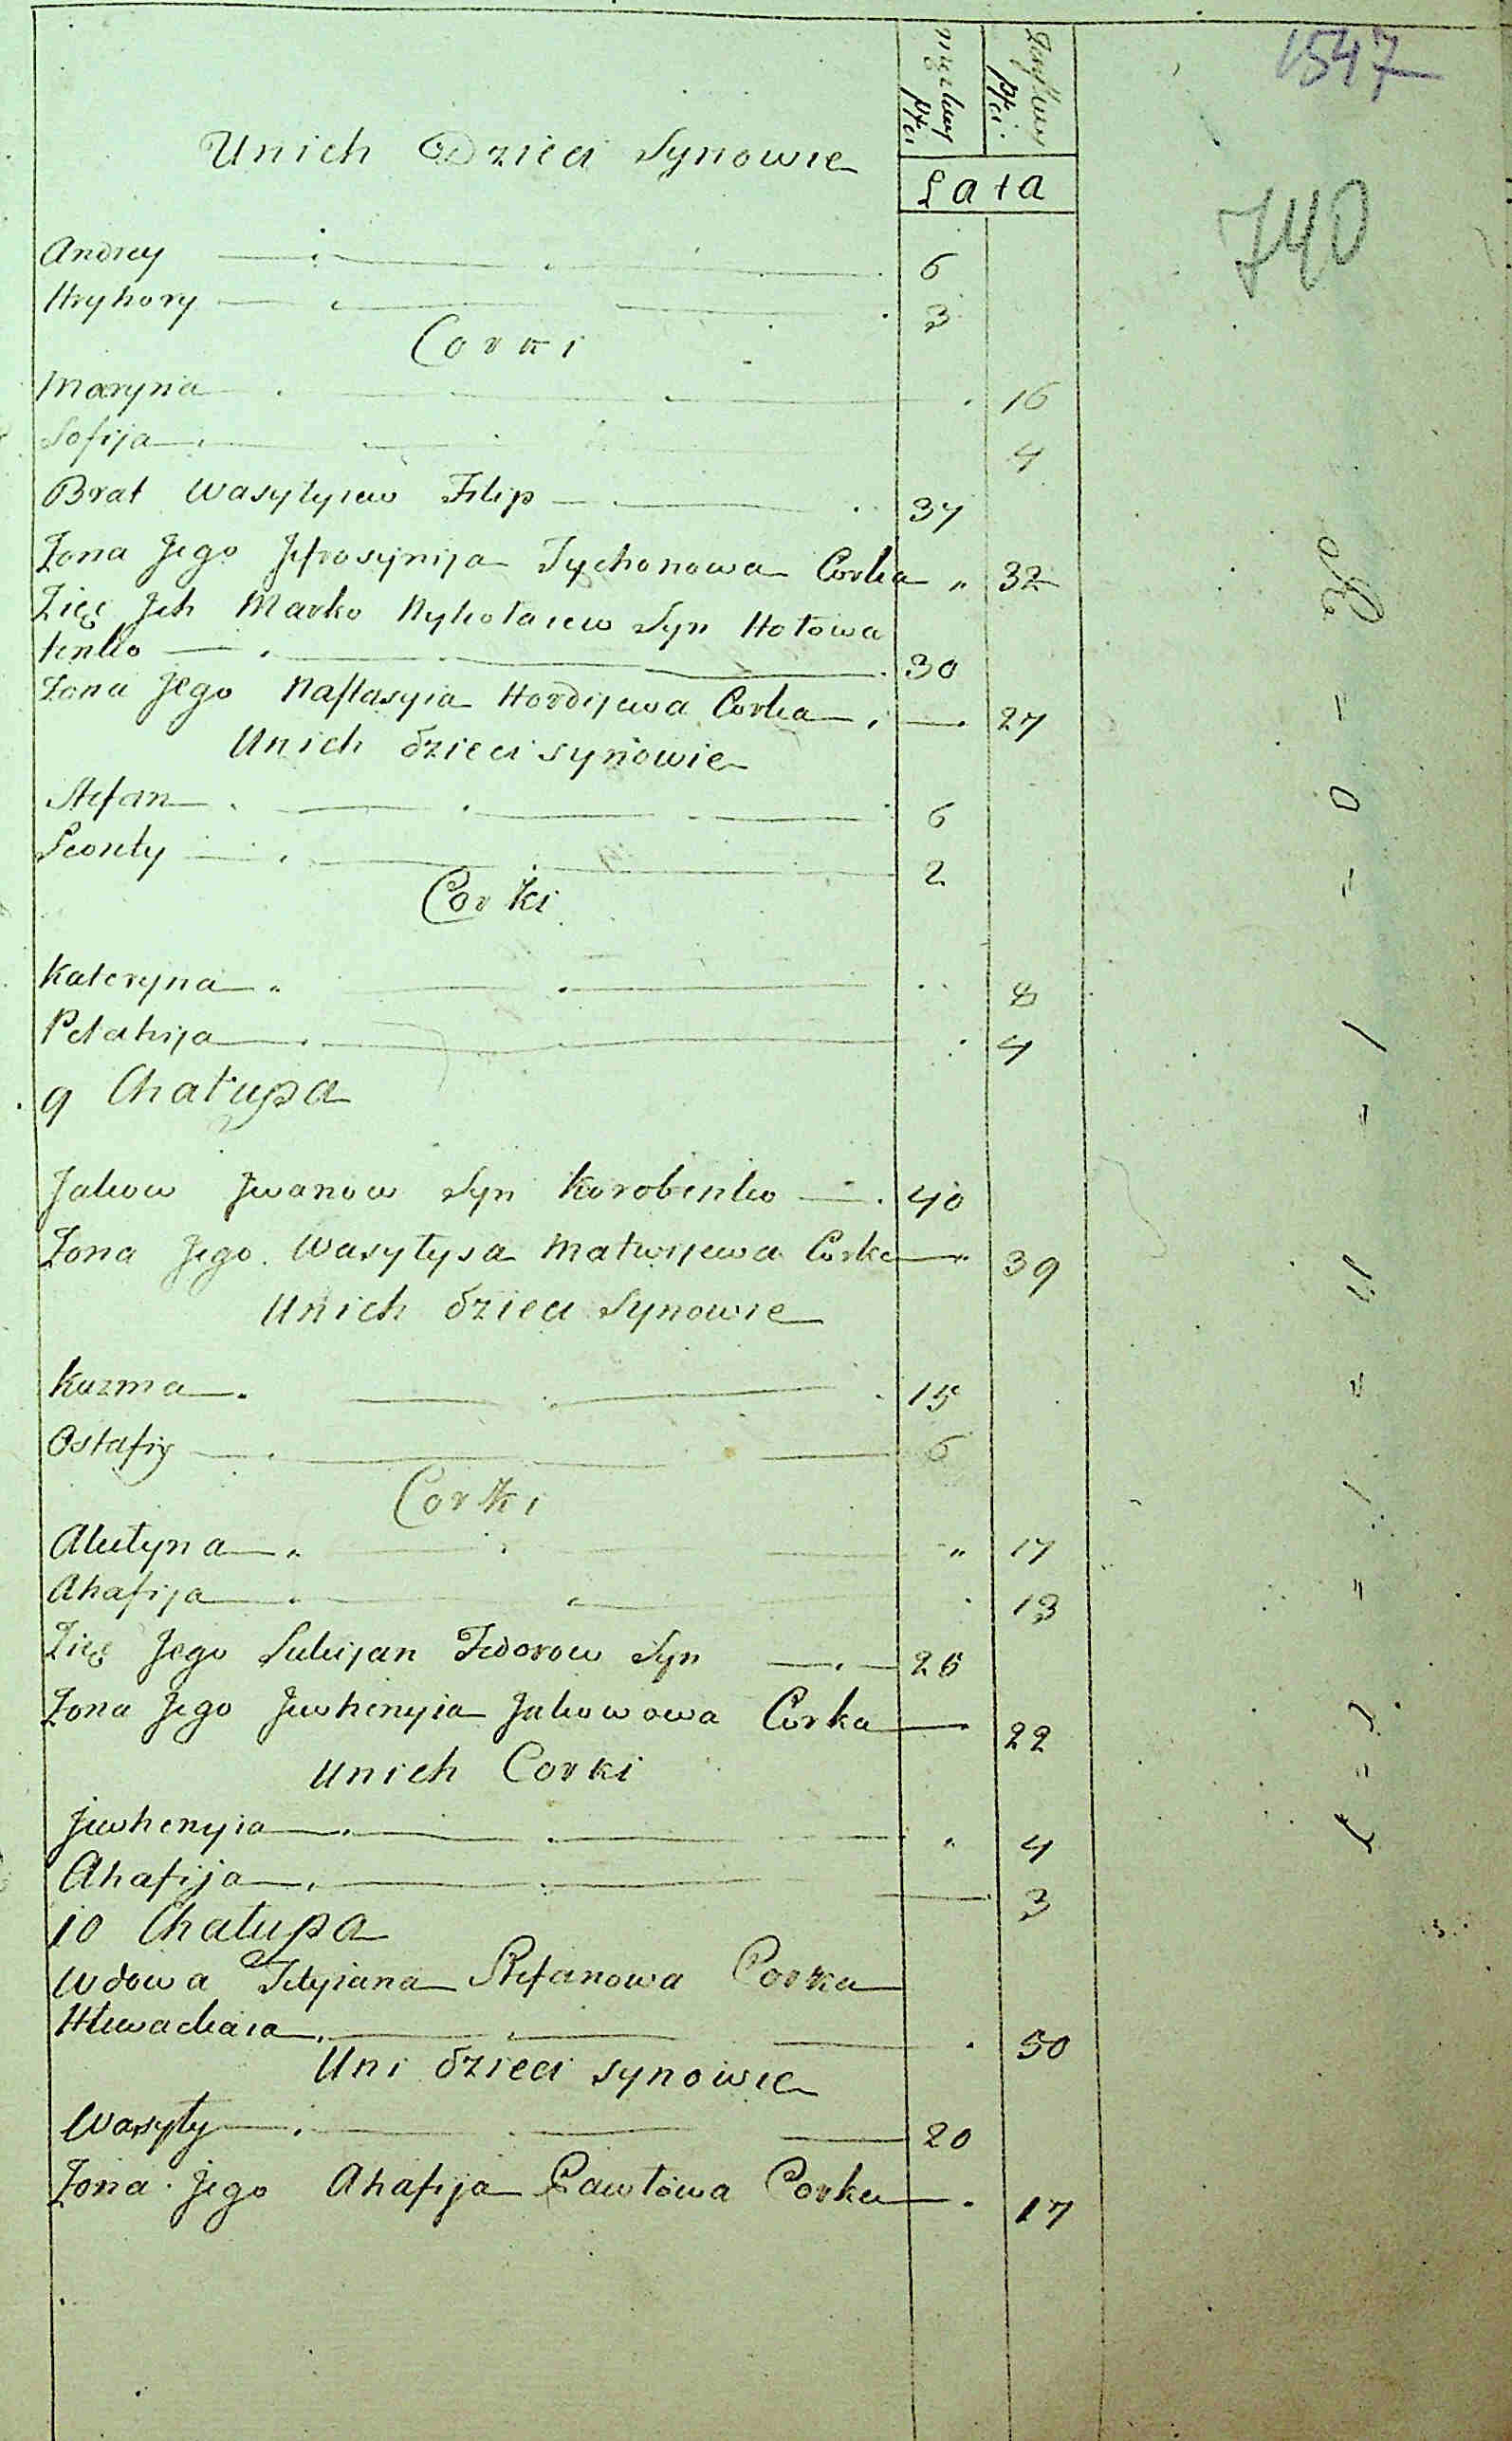 1547
740
męzkiey płci
Żeńskiey płci
Lata
Unich Dzieci Synowie
Andrey 6
Hryhory 3
Corki
Maryna 16
Sofija 4
Brat Wasylyiew Filip 37
Żona Jego Jefrosynija Tychonowa Corka 32
Zięć Jch Marko Nykołaiew Syn Hołowa
tenko 30
Żona Jego Nastasyia Hordijewa Corka 27
Unich dzieci synowie
Stefan 6
Leonty 2
Corki
Kateryna 8
Pelahija 4
9 Chałupa
Jakow Jwanow Syn Korobenko 40
Żona Jego Wasylysa Matwijewa Corka 39
Unich dzieci Synowie
Kuzma 15
Ostafiy 6
Corki
Akulyna 17
Ahafija 13
Zięć Jego Lukijan Fedorow Syn 26
Żona Jego Jewhenyia Jakowowa Corka 22
Unich Corki
Jewhenyia 4
Ahafija 3
10 Chałupa
Wdowa Tetyiana Stefanowa Corka
50
Uni dzieci synowie
Wasyly 20
Żona Jego Ahafija Pawłowa Corka 17